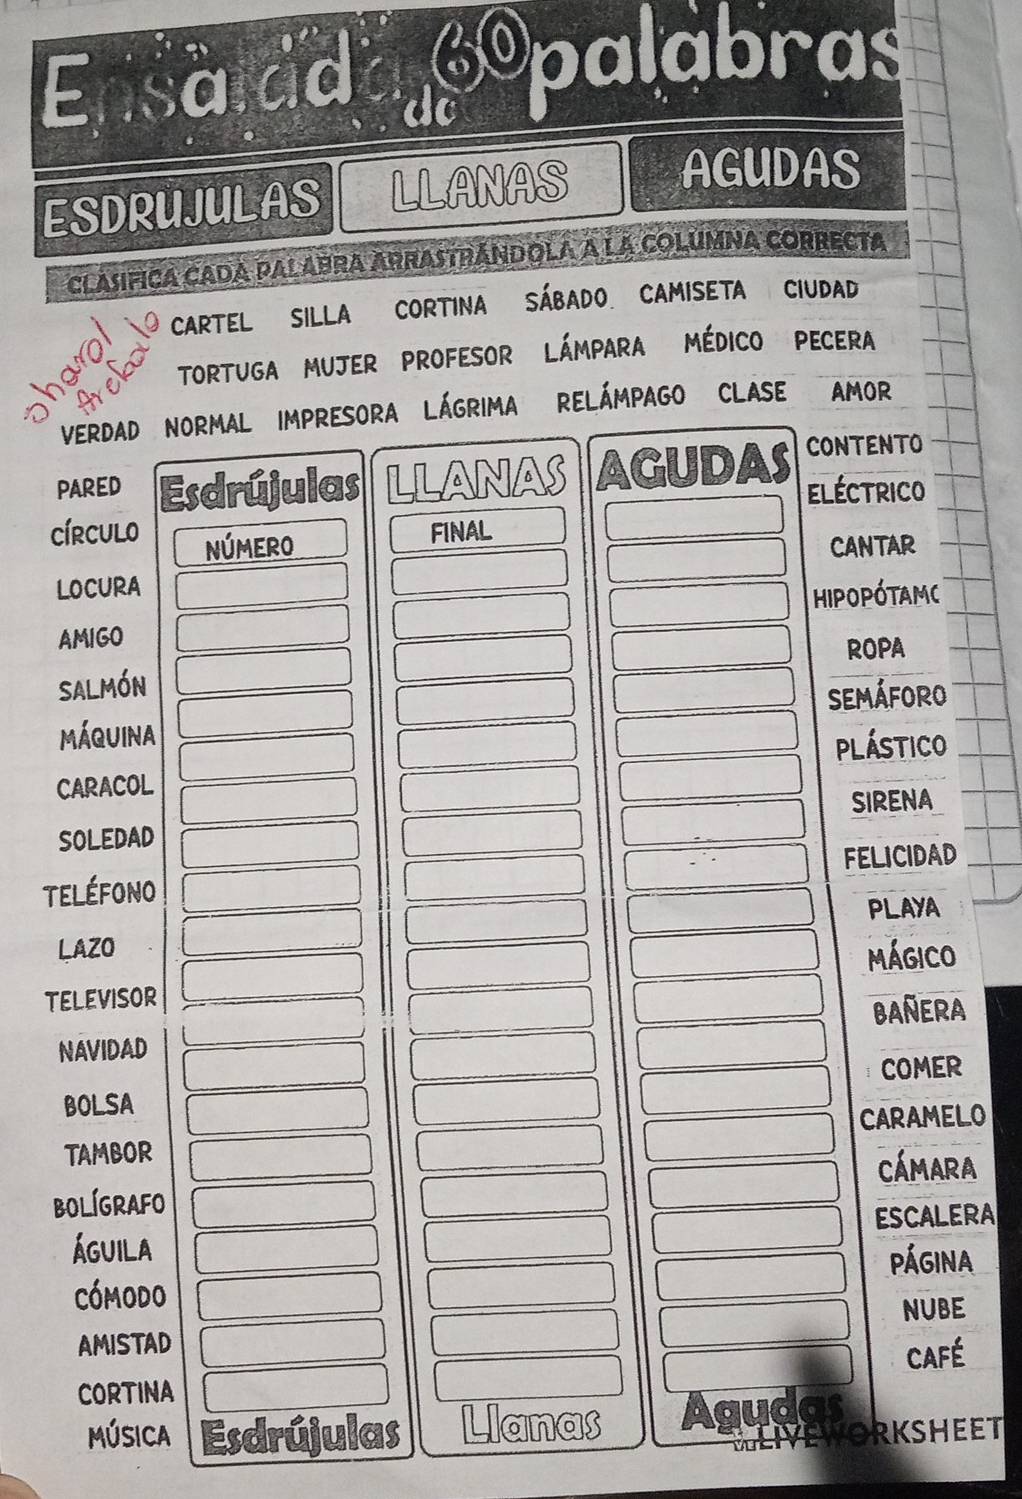 Ensalada de 60 palabras
ESDRÚJULAS LLANAS AGUDAS
CLASIFICA CADA PALABRA ARRASTRÁNDOLA A LA COLUMNA CORRECTA
CARTEL SILLA CORTINA SÁBADO CAMISETA CIUDAD
TORTUGA MUJER PROFESOR LÁMPARA MÉDICO PECERA
VERDAD NORMAL IMPRESORA LÁGRIMA RELÁMPAGO CLASE AMOR
PARED
CÍRCULO
LOCURA
AMIGO
SALMÓN
MÁQUINA
CARACOL
SOLEDAD
TELÉFONO
LAZO
TELEVISOR
NAVIDAD
BOLSA
TAMBOR
BOLÍGRAFO
ÁGUILA
CÓMODO
AMISTAD
CORTINA
MÚSICA
Esdrújulas LLANAS AGUDAS
NÚMERO FINAL
Esdrújulas Llanas Agudas
CONTENTO
ELÉCTRICO
CANTAR
HIPOPÓTAMO
ROPA
SEMÁFORO
PLÁSTICO
SIRENA
FELICIDAD
PLAYA
MÁGICO
BAÑERA
COMER
CARAMELO
CÁMARA
ESCALERA
PÁGINA
NUBE
CAFÉ
LIVEWORKSHEET